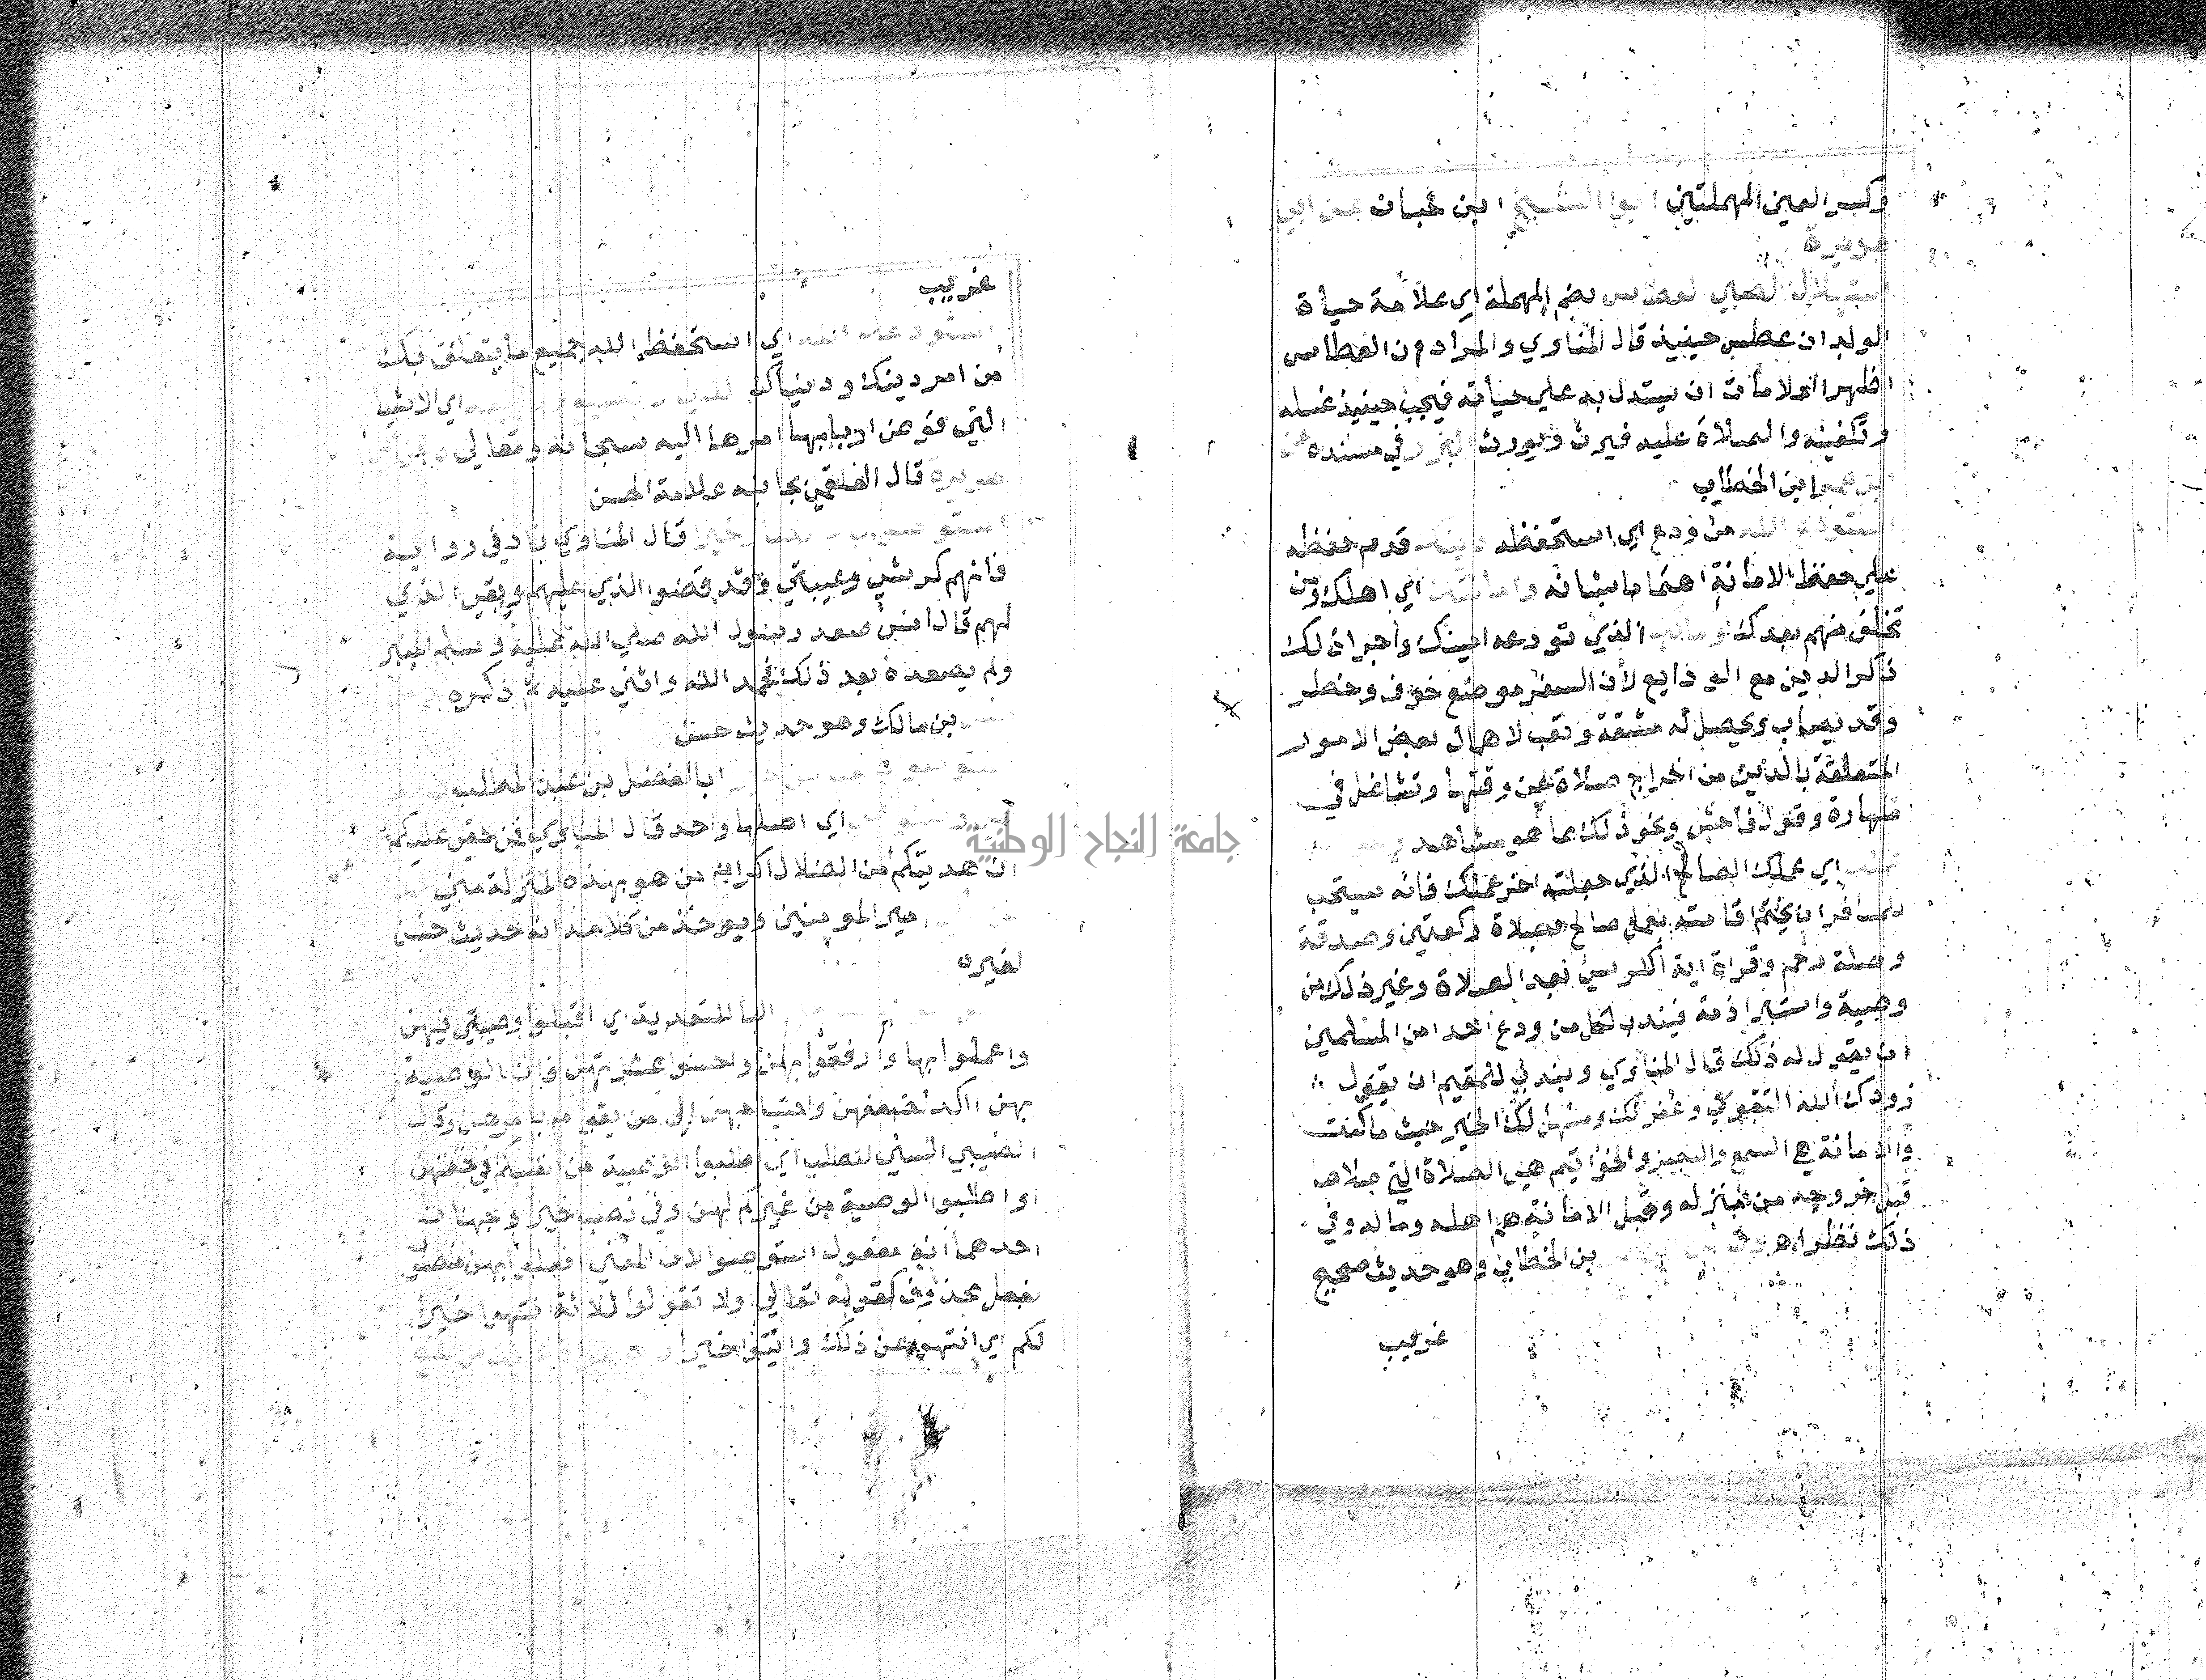 وكسر العين المهملتين ابوا الشيخ ابن حبان عن ابي
هريرة
استهلال الصبي العطاس بضم المهملة اي علامة حياة
الولد ان عطس حينيذ قال المناوي والمراد من العطاس
اظهر او لامات ان يستدل به علي حياته فيجب حينيذ غسله
وتكفينه والصلاة عليه فيرث ويورث البزار في مسنده عن
ابن عمر ابن الخطاب
استودع الله من ودع اي استحفظه دينك قدم حفظه
علي حفظ الامانة اهتماما بشانه وامانتك اي اهلك ومن
تخلف منهم بعدك ومالك الذي تودعه امينك واجرا ذلك
ذكر الدين مع الودايع لان السفر موضع خوف وخطر
وقد يصاب ويحصل له مشقة وتعب لاهمال بعض الامور
المتعلقة بالدين من اخراج صلاة عن وقتها وتشاغل في
طهارة وقول فاحش ونحو ذلك مما هو مشاهد
اي عملك الصالح الذي جعلته اخر عملك فانه يستحب
للمسافر ان يختم اقامته بعمل صالح كصلاة ركعتين وصدقة
وصلة رحم وقراة اية الكرسي بعد الصلاة وغير ذلك من
وصية واستبرا ذمة فيندب لكل من ودع احدا من المسلمين
ان يقول له ذلك قال المناوي ويندب للمقيم ان يقول
زودك الله التقوي وغفر لك ويسر لك الخير حيث ما كنت
والامانة هي السمع والبصر والخواتيم هي الصلاة التي صلاها
قبل خروجه من منزله وقيل الامانة هي اهله وماله وفي
ذلك نظر اهـ بن الخطاب وهو حديث صحيح
غريب
غريب
استودعك الله اي استحفظ الله جميع ما يتعلق بك
من امر دينك ودنياك اي الاشيا
التي فوض اربابها امرها اليه سبحانه وتعالي
هريرة قال العلقمي بجانبه علامة الحسن
استوصوا خيرا قال المناوي زاد في رواية
فانهم كرشي وعيبتي وقد قضوا الذي عليهم وبقي الذي
لهم قال انس صعد رسول الله صلي الله عليه وسلم المنبر
ولم يصعده بعد ذلك فحمد الله واثني عليه ثم ذكره
بن مالك وهو حديث حسن
ابا الفضل بن عبد المطلب
اي اصلهما واحد قال المناوي فمن حقي عليكم
ان هديتكم من الضلال اكرام من هو بهذه المنزلة مني
امير المومنين ويوخذ من كلامه انه حديث حسن
لغيره
البا للتعدية اي اقبلوا وصيتي فيهن
واعملوا بها وارفقوا بهن واحسنوا عشرتهن فان الوصية
بهن اكد لضعفهن واحتياجهن الي من يقوم بامرهن وقال
الطيبي السين للطلب اي اطلبوا الوصية من انفسكم في حقهن
او اطلبوا الوصية من غيركم لهن وفي نصب خيرا وجهان
احدهما انه مفعول استوصوا لان المعني افعلوا بهن
بفعل محذوف كقوله تعالي ولا تقولوا ثلاثة انتهوا خيرا
لكم اي انتهوا عن ذلك واتوا خيرا
جامعة النجاح الوطنية